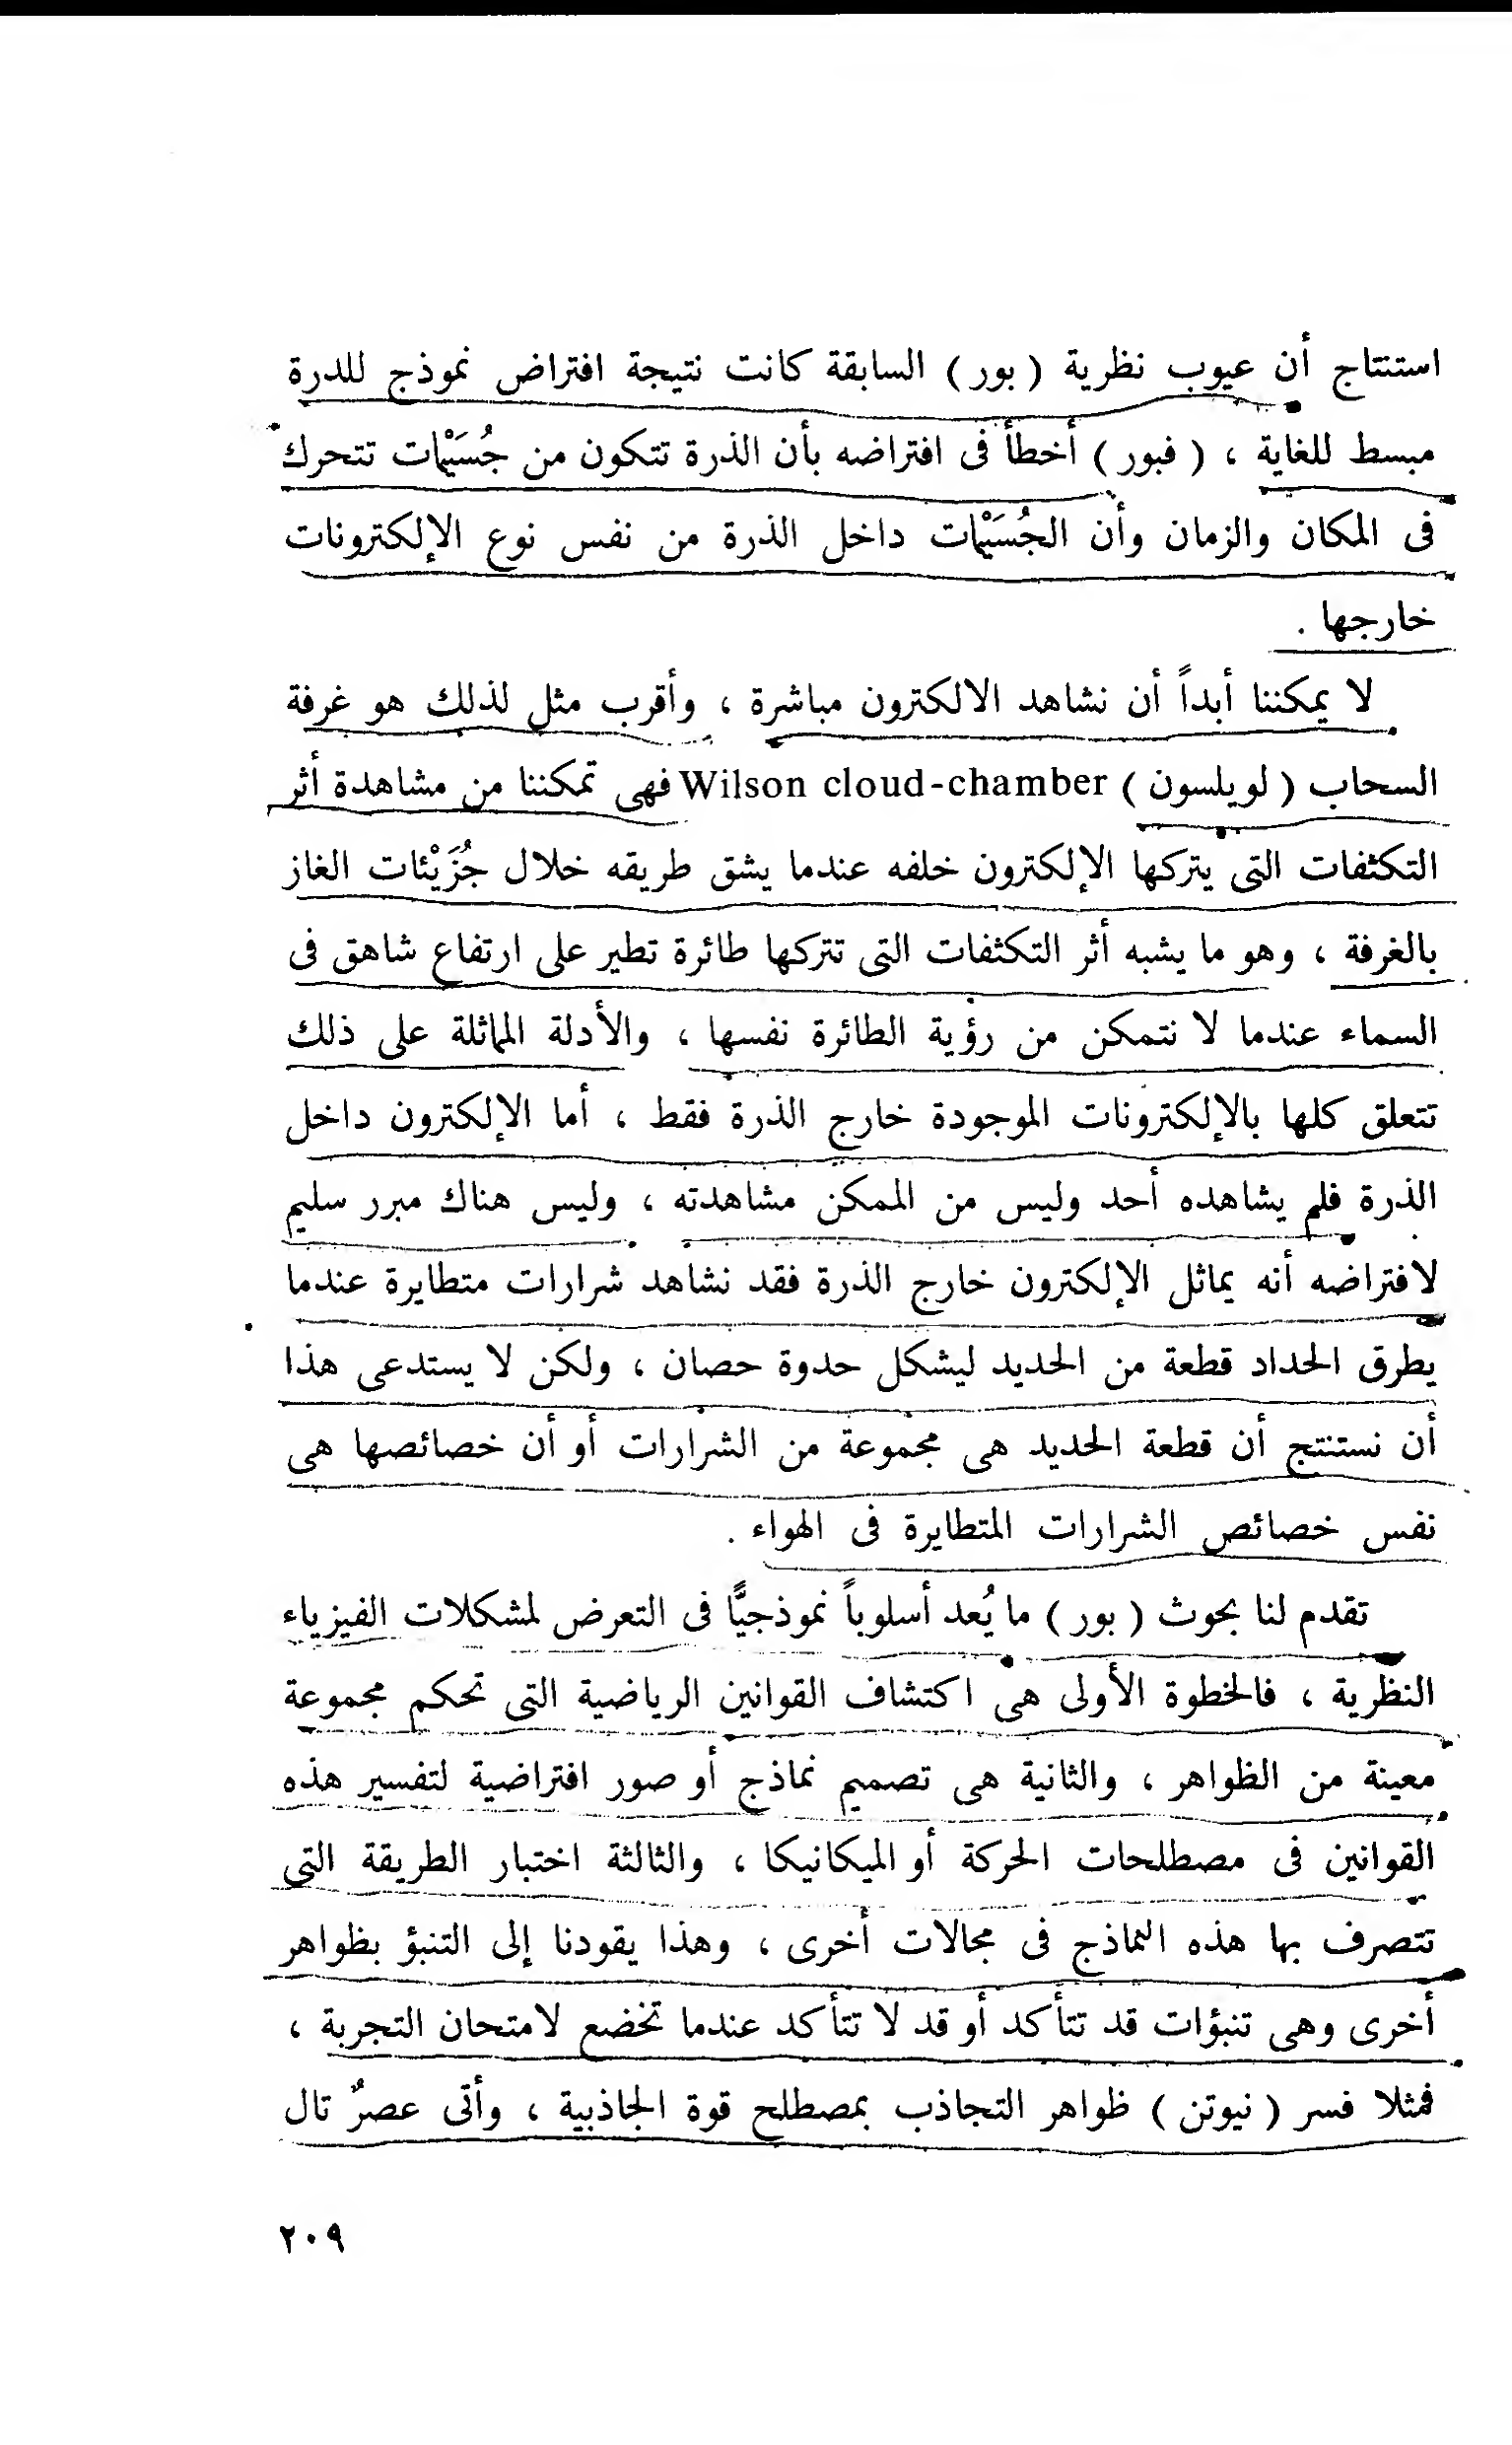 استنتاج أن عيوب نظرية ( بور ) السابقة كانت نتيجة افتراض نموذج للدرة
مبسط للغاية ، ( فبور ) أخطأ فى افتراضه بأن الذرة تتكون من جُسَيْمات تتحرك
فى المكان والزمان وأن الجُسَيْمات داخل الذرة من نفس نوع الإلكترونات
خارجها .
لا يمكننا أبداً أن نشاهد الالكترون مباشرة ، وأقرب مثل لذلك هو غرفة
السحاب ( لويلسون ) Wilson cloud-chamber فهى تمكننا من مشاهدة أثر
التكثفات التى يتركها الإلكترون خلفه عندما يشق طريقه خلال جُزَيْئات الغاز
بالغرفة ، وهو ما يشبه أثر التكثفات التى تتركها طائرة تطير على ارتفاع شاهق فى
السماء عندما لا نتمكن من رؤية الطائرة نفسها ، والأدلة المماثلة على ذلك
تتعلق كلها بالإلكترونات الموجودة خارج الذرة فقط ، أما الإلكترون داخل
الذرة فلم يشاهده أحد وليس من الممكن مشاهدته ، وليس هناك مبرر سليم
لافتراضه أنه يماثل الإلكترون خارج الذرة فقد نشاهد شرارات متطايرة عندما
يطرق الحداد قطعة من الحديد ليشكل حدوة حصان ، ولكن لا يستدعى هذا
أن نستنتج أن قطعة الحديد هى مجموعة من الشرارات أو أن خصائصها هى
نفس خصائص الشرارات المتطايرة فى الهواء .
تقدم لنا بحوث ( بور ) ما يُعد أسلوباً نموذجيًّا فى التعرض لمشكلات الفيزياء
النظرية ، فالخطوة الأولى هى اكتشاف القوانين الرياضية التى تحكم مجموعة
معينة من الظواهر ، والثانية هى تصميم نماذج أو صور افتراضية لتفسير هذه
القوانين فى مصطلحات الحركة أو الميكانيكا ، والثالثة اختبار الطريقة التى
تتصرف بها هذه النماذج فى مجالات أخرى ، وهذا يقودنا إلى التنبؤ بظواهر
أخرى وهى تنبؤات قد تتأكد أو قد لا تتأكد عندما تخضع لامتحان التجربة ،
فمثلا فسر ( نيوتن ) ظواهر التجاذب بمصطلح قوة الجاذبية ، وأتى عصرٌ تال
٢٠٩